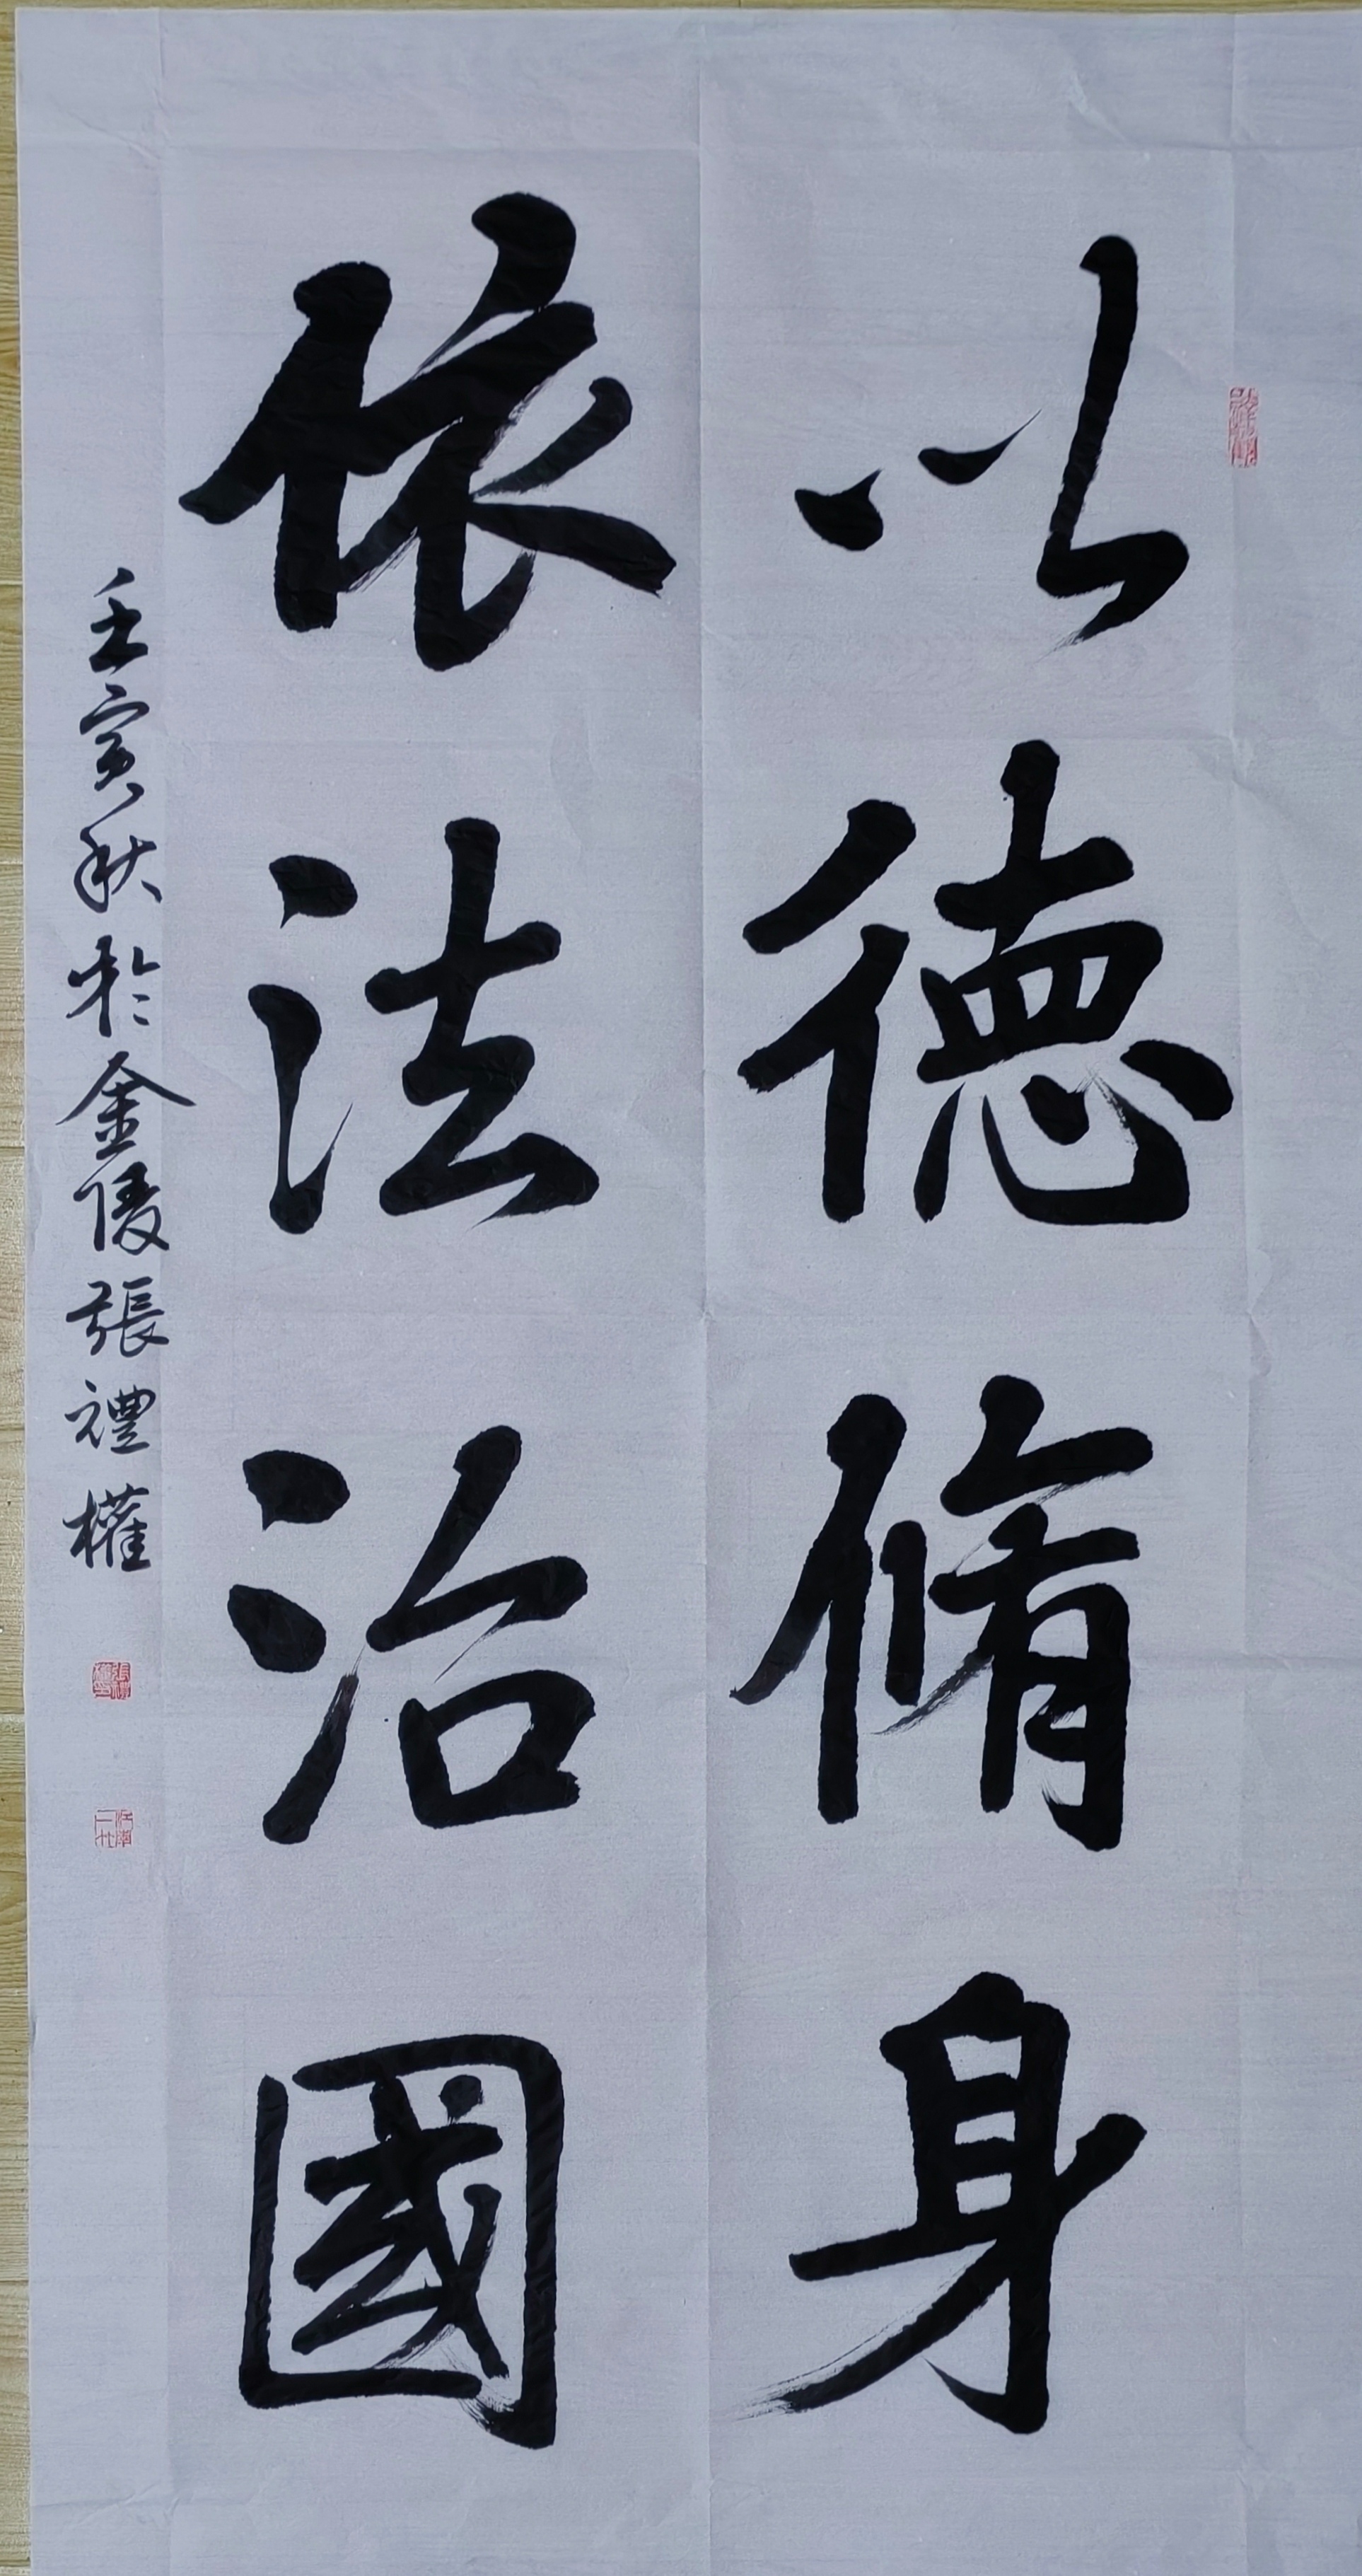 以德脩身
依法治國
壬寅秋於金陵張禮權